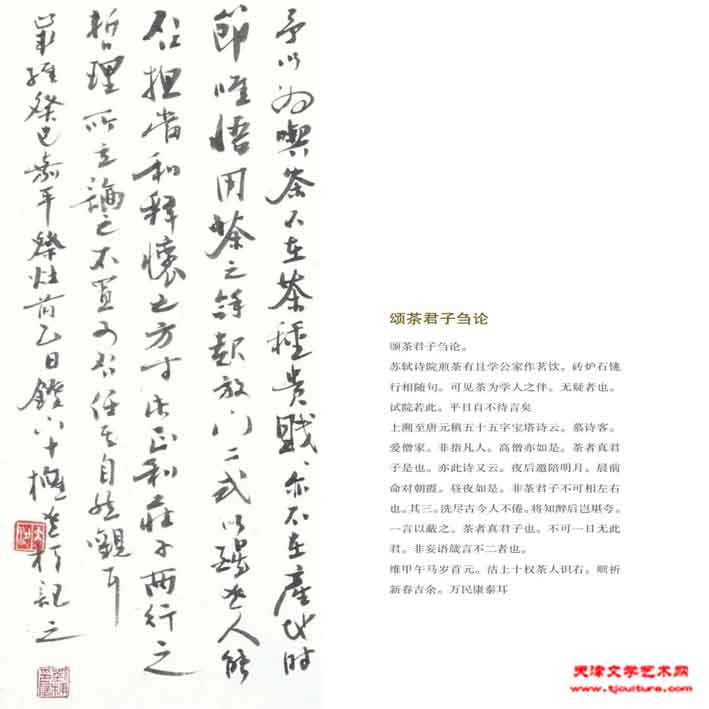 予以为喫茶不在茶種贵賤亦不在產地时
節唯悟用茶之
担當和釋懷之方寸
哲理所立論之不置可否任其自然觀耳
歲維癸巳嘉平
颂茶君子刍论
颂茶君子刍论。
苏轼诗院煎茶有且学公家作茗饮。砖炉石铫
行相随句。可见茶为学人之伴。无疑者也。
试院若此。平日自不待言矣
上溯至唐元稹五十五字宝塔诗云。慕诗客。
爱僧家。非指凡人。高僧亦如是。茶者真君
子是也。亦此诗又云。夜后邀陪明月。晨前
命对朝霞。昼夜如是。非茶君子不可相左右
也。其三。洗尽古今人不倦。将知醉后岂堪夸。
一言以蔽之。茶者真君子也。不可一日无此
君。非妄语箴言不二者也。
维甲午马岁首元。沽上十权茶人识石。顺祈
新春吉余。万民康泰耳
天津文学艺术网
www.tjculture.com